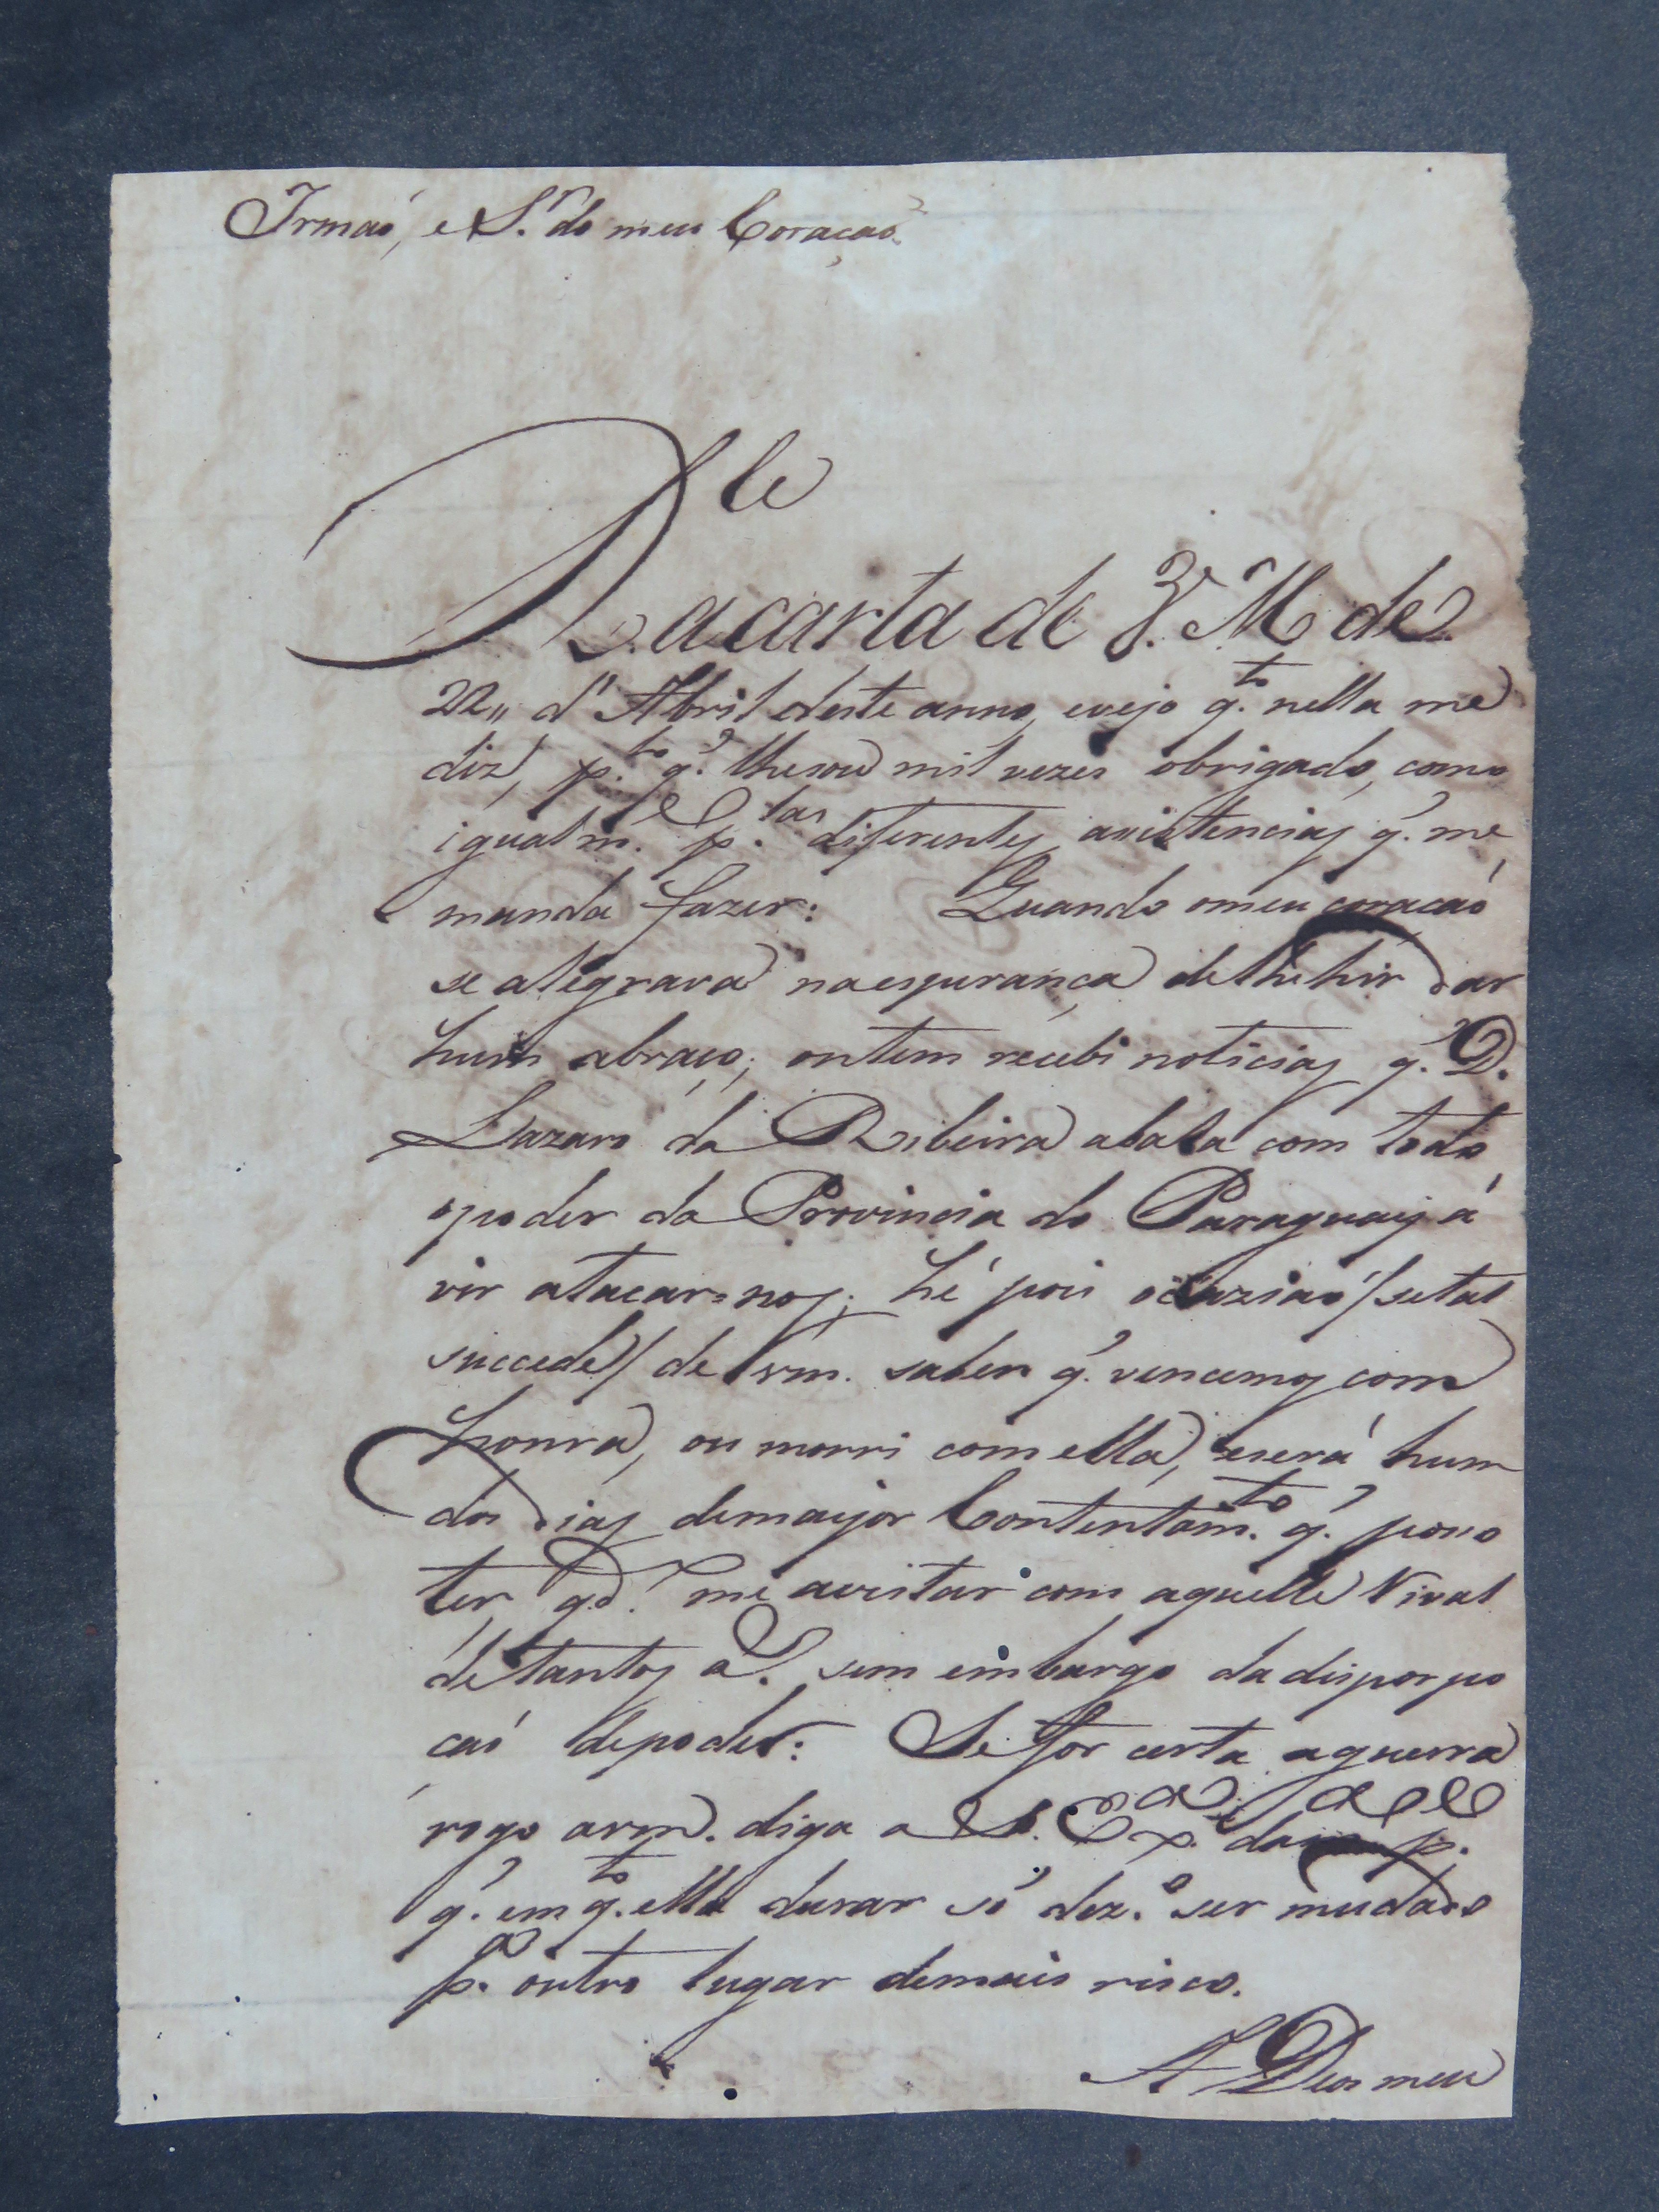 Irmaõ, e S.r do meu Coraçaõ
R.le a carta de V. M de
22,, d'Abril deste anno, evejo q.to nella me
diz, p.to q.' lhesou mil vezes obrigado, como
igualm.e p.las diferentes asistencias q.' me
manda fazer: Quando omeu coracaõ
se alegrava naesperança delhehir dar
hum abraço; ontem recebi noticias q.' D.
Lazaro da Ribeira abala com todo
opoder da Provincia do Paraguay á
vir atacar=nos; hé pois ocaziaõ/setal
succede/ de vm. saber q.' vencemos com
honra, ou morri comella, eserá hum
dos dias demayor Contentam.to q.' posso
ter q.do me avistar com aquelle Rival
detantos a.s sem embargo da disporpo
caõ depoder: Se for certa aguerra
rogo avm. diga a S. Ex.a p.a
q.' em q.to ella durar só dez.o ser mudado
p.a outro lugar demais risco.
A Deos meu